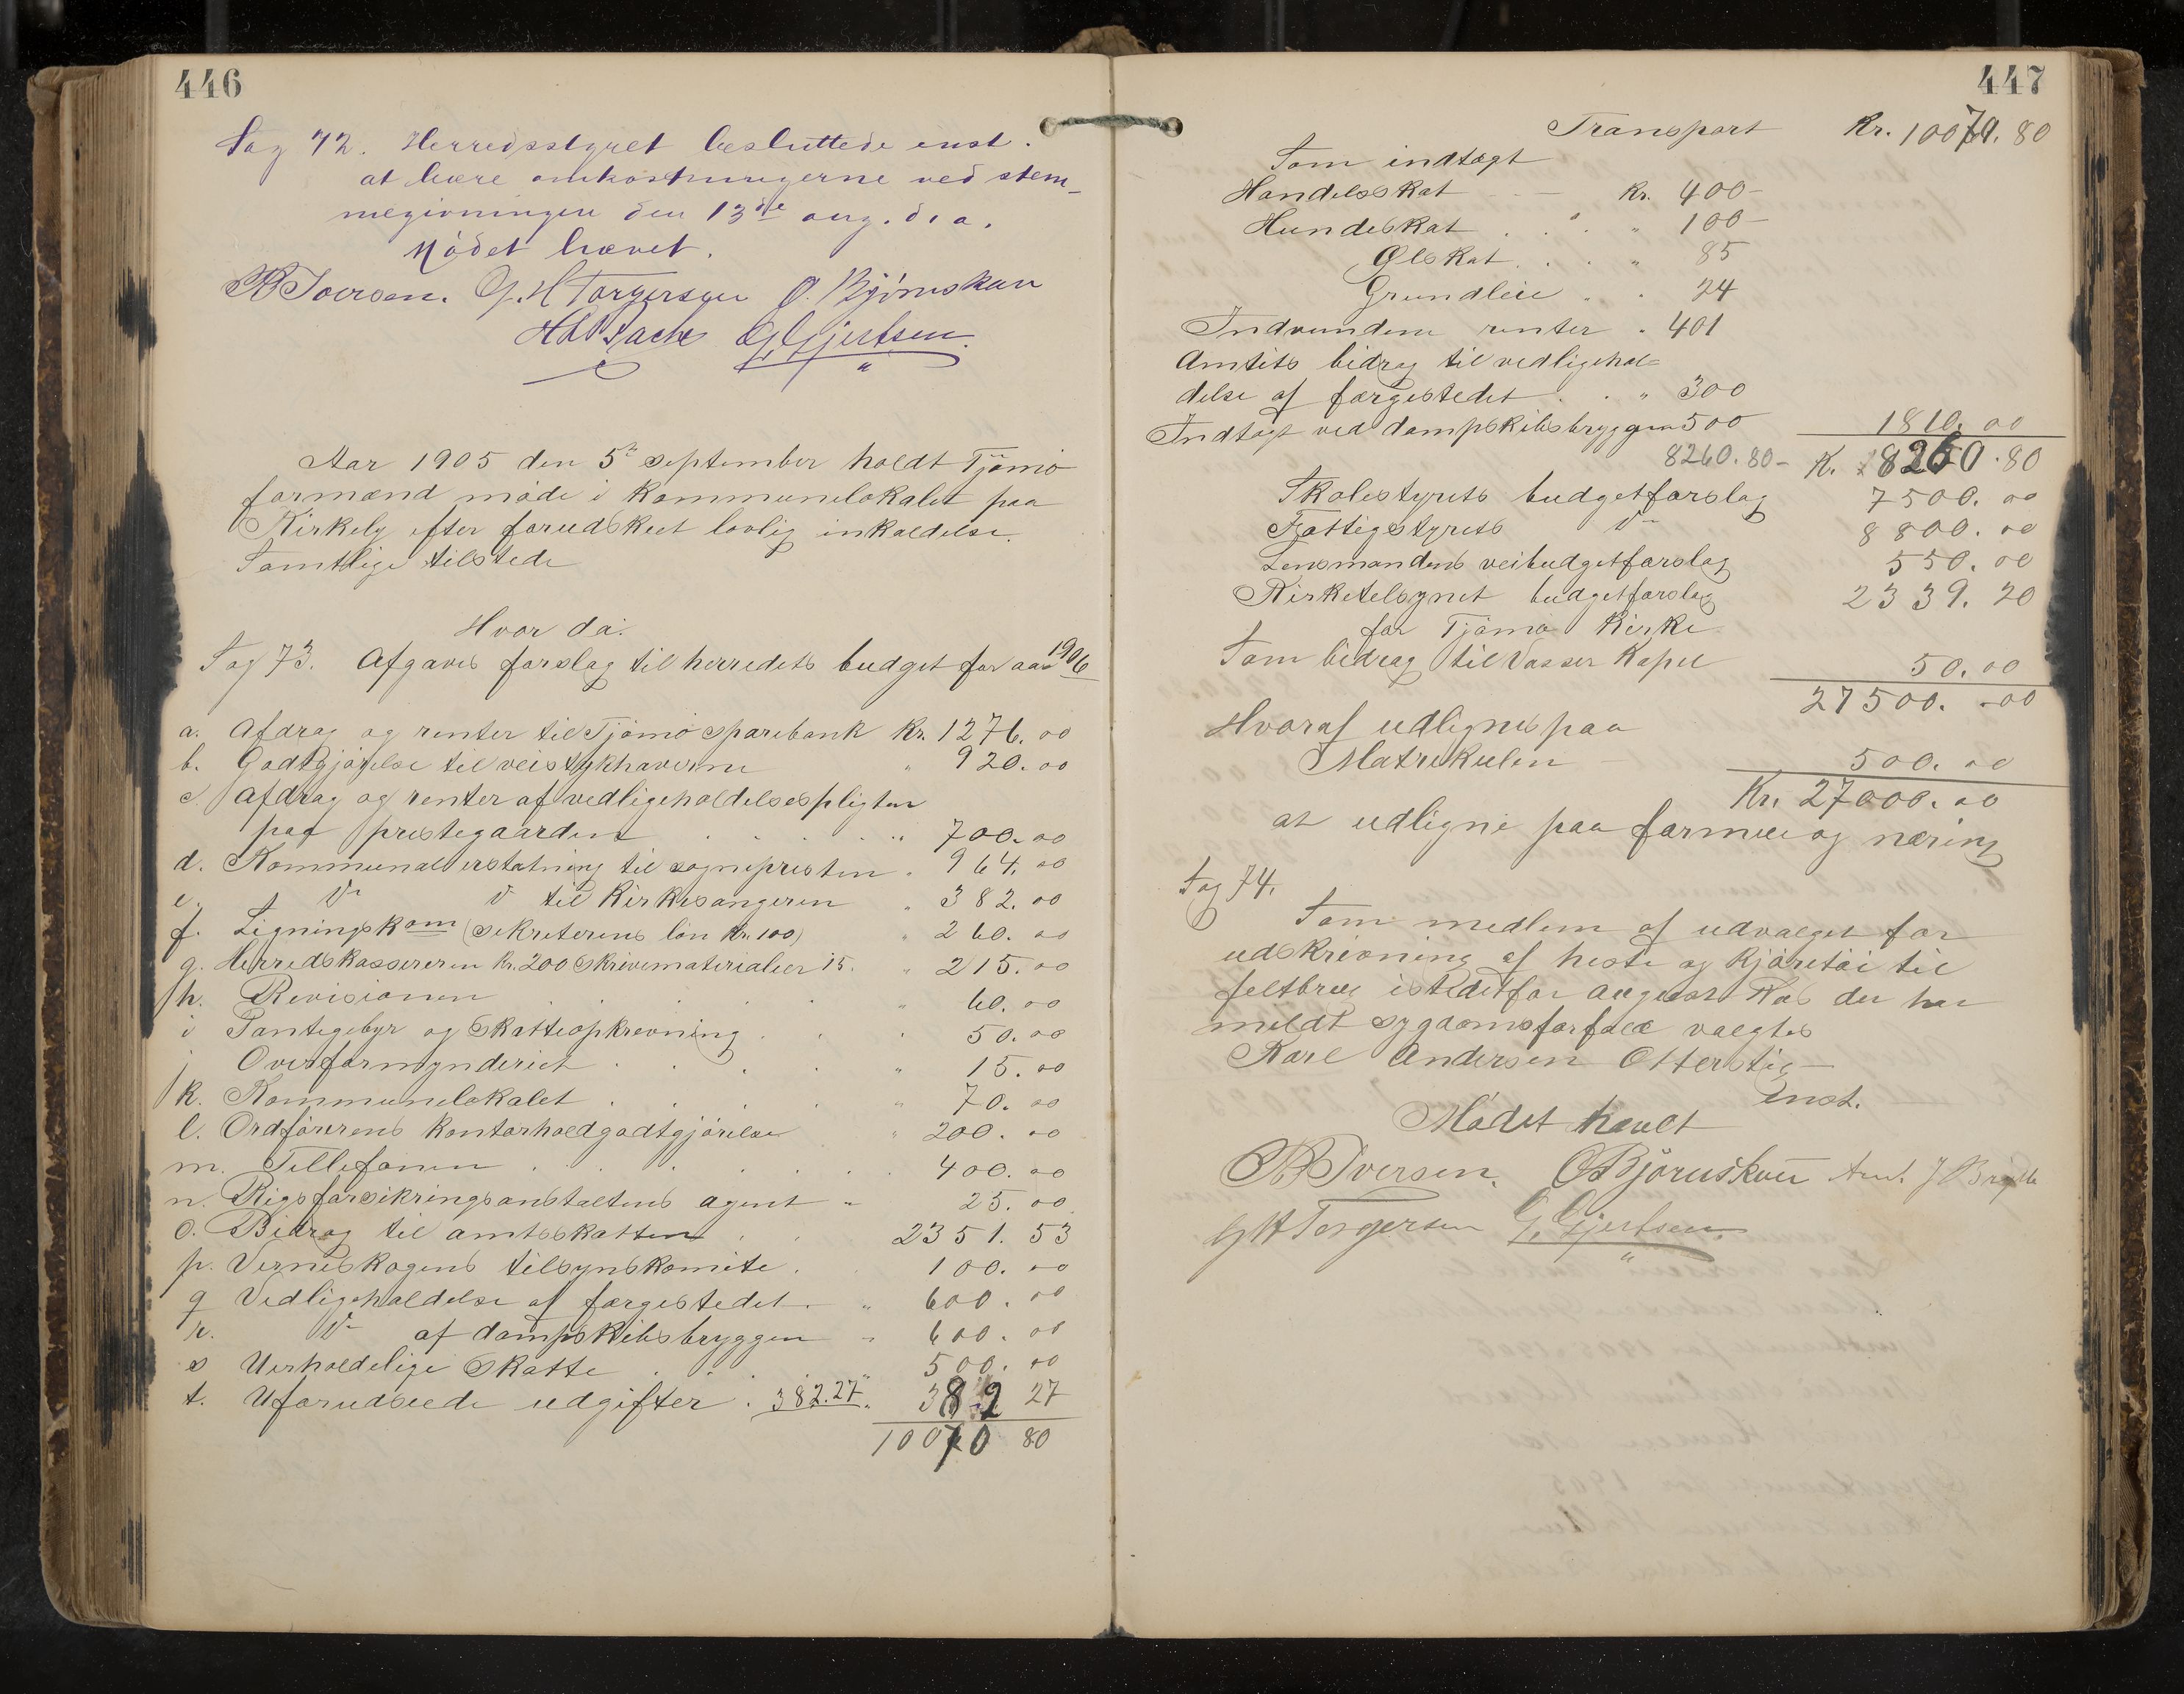 446
Sag 72. Herredsstyret besluttede enst.
at bære omkostningerne ved stem-
megivningen den 13de aug. d. a.
Mödet hævet.
R Iversen. G. H Torgersen O. Björnskau
G Gjertsen.
Aar 1905 den 5te september holdt Tjömö
formænd möde i Kommunelokalet paa
Kirkely efter forudskeet lovlig inkaldelse.
Samtlige tilstede
Hvor da:
Sag 73. Afgaves forslag til herredets budget for aar 1906
a. Afdrag og renter til Tjömö sparebank Kr. 1276.00
b. Godtgjörelse til veistykhaverne " 920.00
c. Afdrag og renter af vedligeholdelsespligten
paa prestegaarden . . . . " 700.00
d. Kommunal erstatning til sognepresten . 964.00
e. Do do til Kirkesangeren " 382.00
f. Ligningskom (sekreterens lön Kr. 100) " 260.00
g. Herredskassereren Kr. 200 Skrivematerialier 15. " 215.00
h. Revisionen . . . . " 60.00
i Pantegebyr og Skatteopkrevning . . . 50.00
j Overformynderiet . . . . " 15.00
k. Kommunelokalet . . . . " 70.00
l. Ordförerens Kontorholdgodtgjörelse " 200.00
m. Tellefonen . . . . . . . 400.00
n. Rigsforsikringsanstaltens agent " 25.00
o. Bidrag til amtsskatten . . 2351.53
p. Verneskogens tilsynskomite . . 100.00
q Vedligeholdelse af færgestedet . " 600.00
r. Do af dampskibsbryggen " 600.00
s Uerholdelige Skatte . . . . 500.00
t. Uforudseede udgifter . 382.27 " 382 27
10070 80
447
Transport Kr. 10070.80
Som indtægt
Handelsskat — Kr. 400-
Hundeskat . . . " 100-
Ölskat . . . " 85
Grundleie " . 24
Indvundne renter . 401
Amtets bidrag til vedligehol=
delse af færgestedet . . " 300
Indtægt ved dampskibsbryggen 500 1810.00
8260.80- K. 8260.80
Skolestyrets budgetforslag 7500.00
Fattigstyrets Do 8800.00
Lensmandens veibudgetforslag 550.00
Kirketelsynet budgetforslag 2339.20
for Tjömö Kirke
Som bidrag til Vasser Kapel 50.00
27500.-00
Hvoraf udlignes paa
Matrikulen — 500.00
Kr. 27000.00
at udligne paa formue og næring
Sag 74.
Som medlem af udvalget for
udskrivning af heste og Kjöretöi til
feltbrug istedetfor August Kos der har
meldt sygdomsforfald valgtes
Karl Andersen Ottersti —
enst.
Mödet hævet
R Iversen. O Björnskau
G H Torgersen G. Gjertsen.